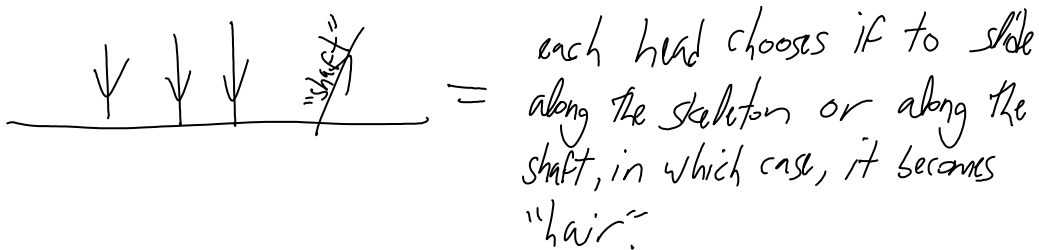 "shaft"
=
each head chooses if to slide
along the skeleton or along the
shaft, in which case, it becomes
"hair".